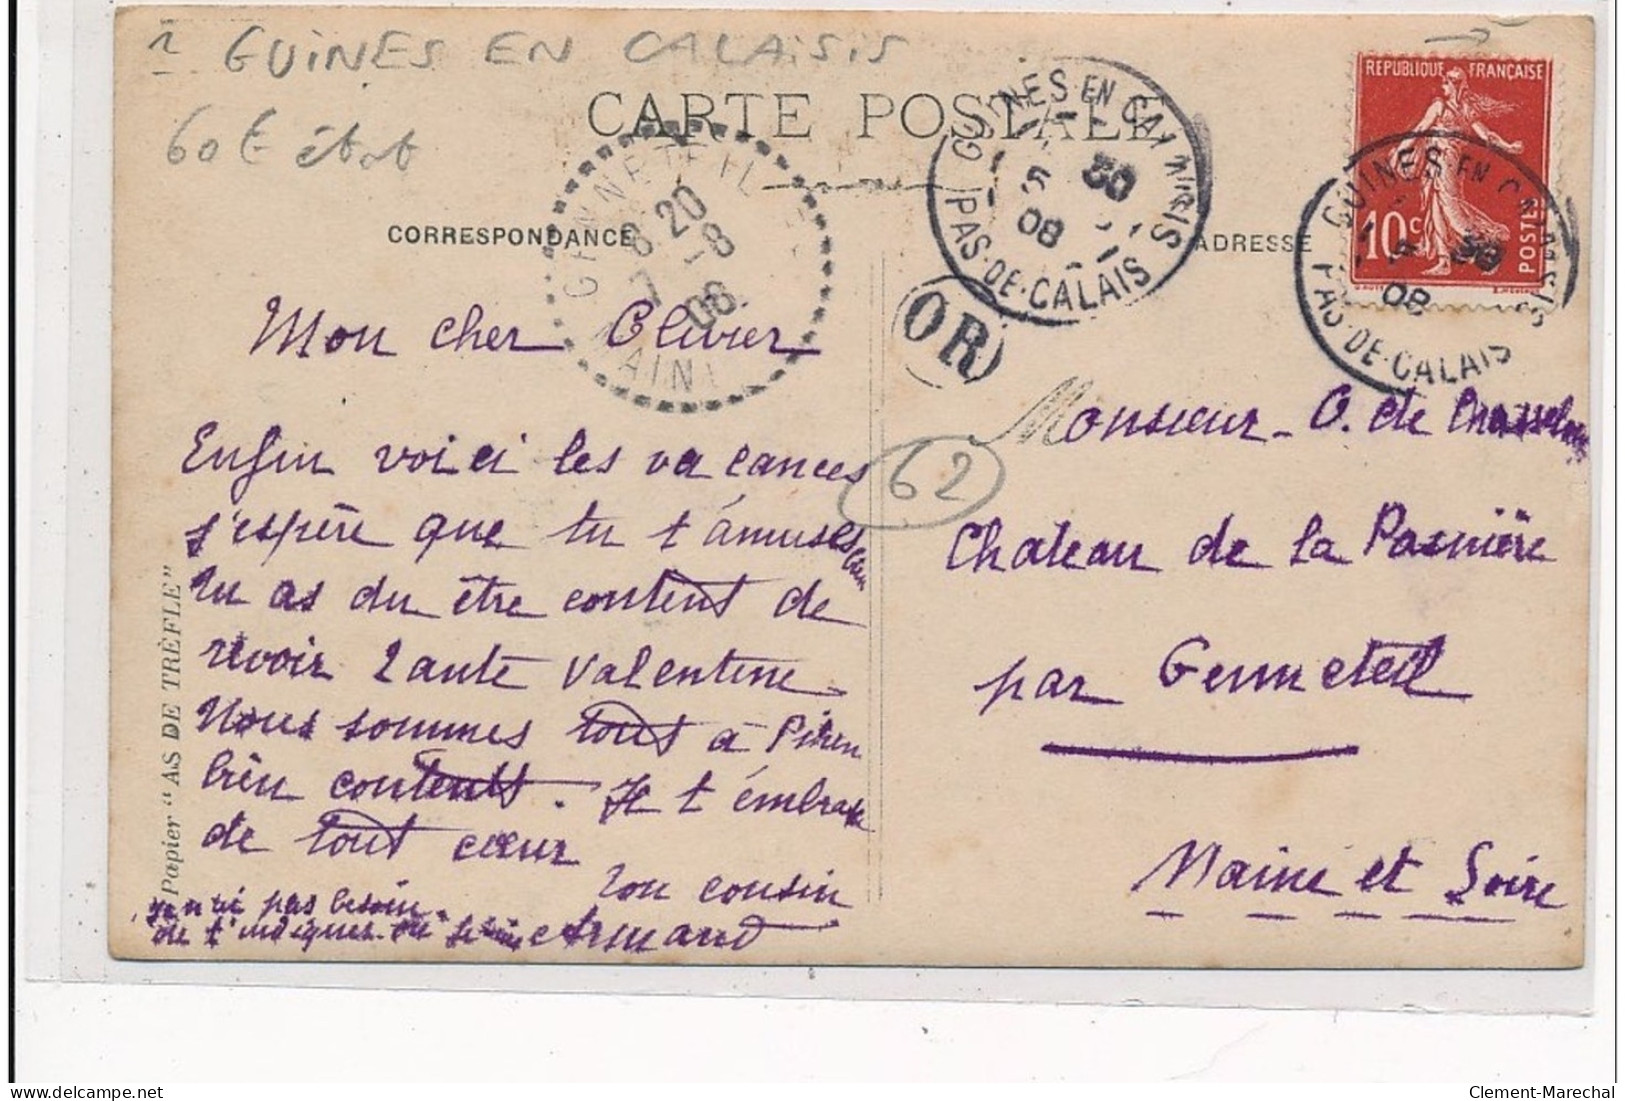 1 GUINES EN CALAISIS
60 € état
CARTE POSTALE
CORRESPONDANCE
ADRESSE
REPUBLIQUE FRANÇAISE
10c
POSTES
GUINES EN CALAISIS
5 30
08
PAS-DE-CALAIS
GUINES EN CALAISIS
5 30
08
PAS-DE-CALAIS
GENNETEIL
8 20
7 -8
08
MAINE
OR
62
Mon cher Olivier
Enfin voici les vacances
j'espère que tu t'amuses bien
Tu as du être content de
revoir Tante Valentine
Nous sommes tous à Pihen
bien contents. Je t'embrasse
de tout cœur
Ton cousin
Armand
je n'ai pas besoin
de t'indiquer ou
Monsieur O. de
Chateau de la Pasnière
par Genneteil
Maine et Loire
Papier "AS DE TRÈFLE"
Clement-Marechal